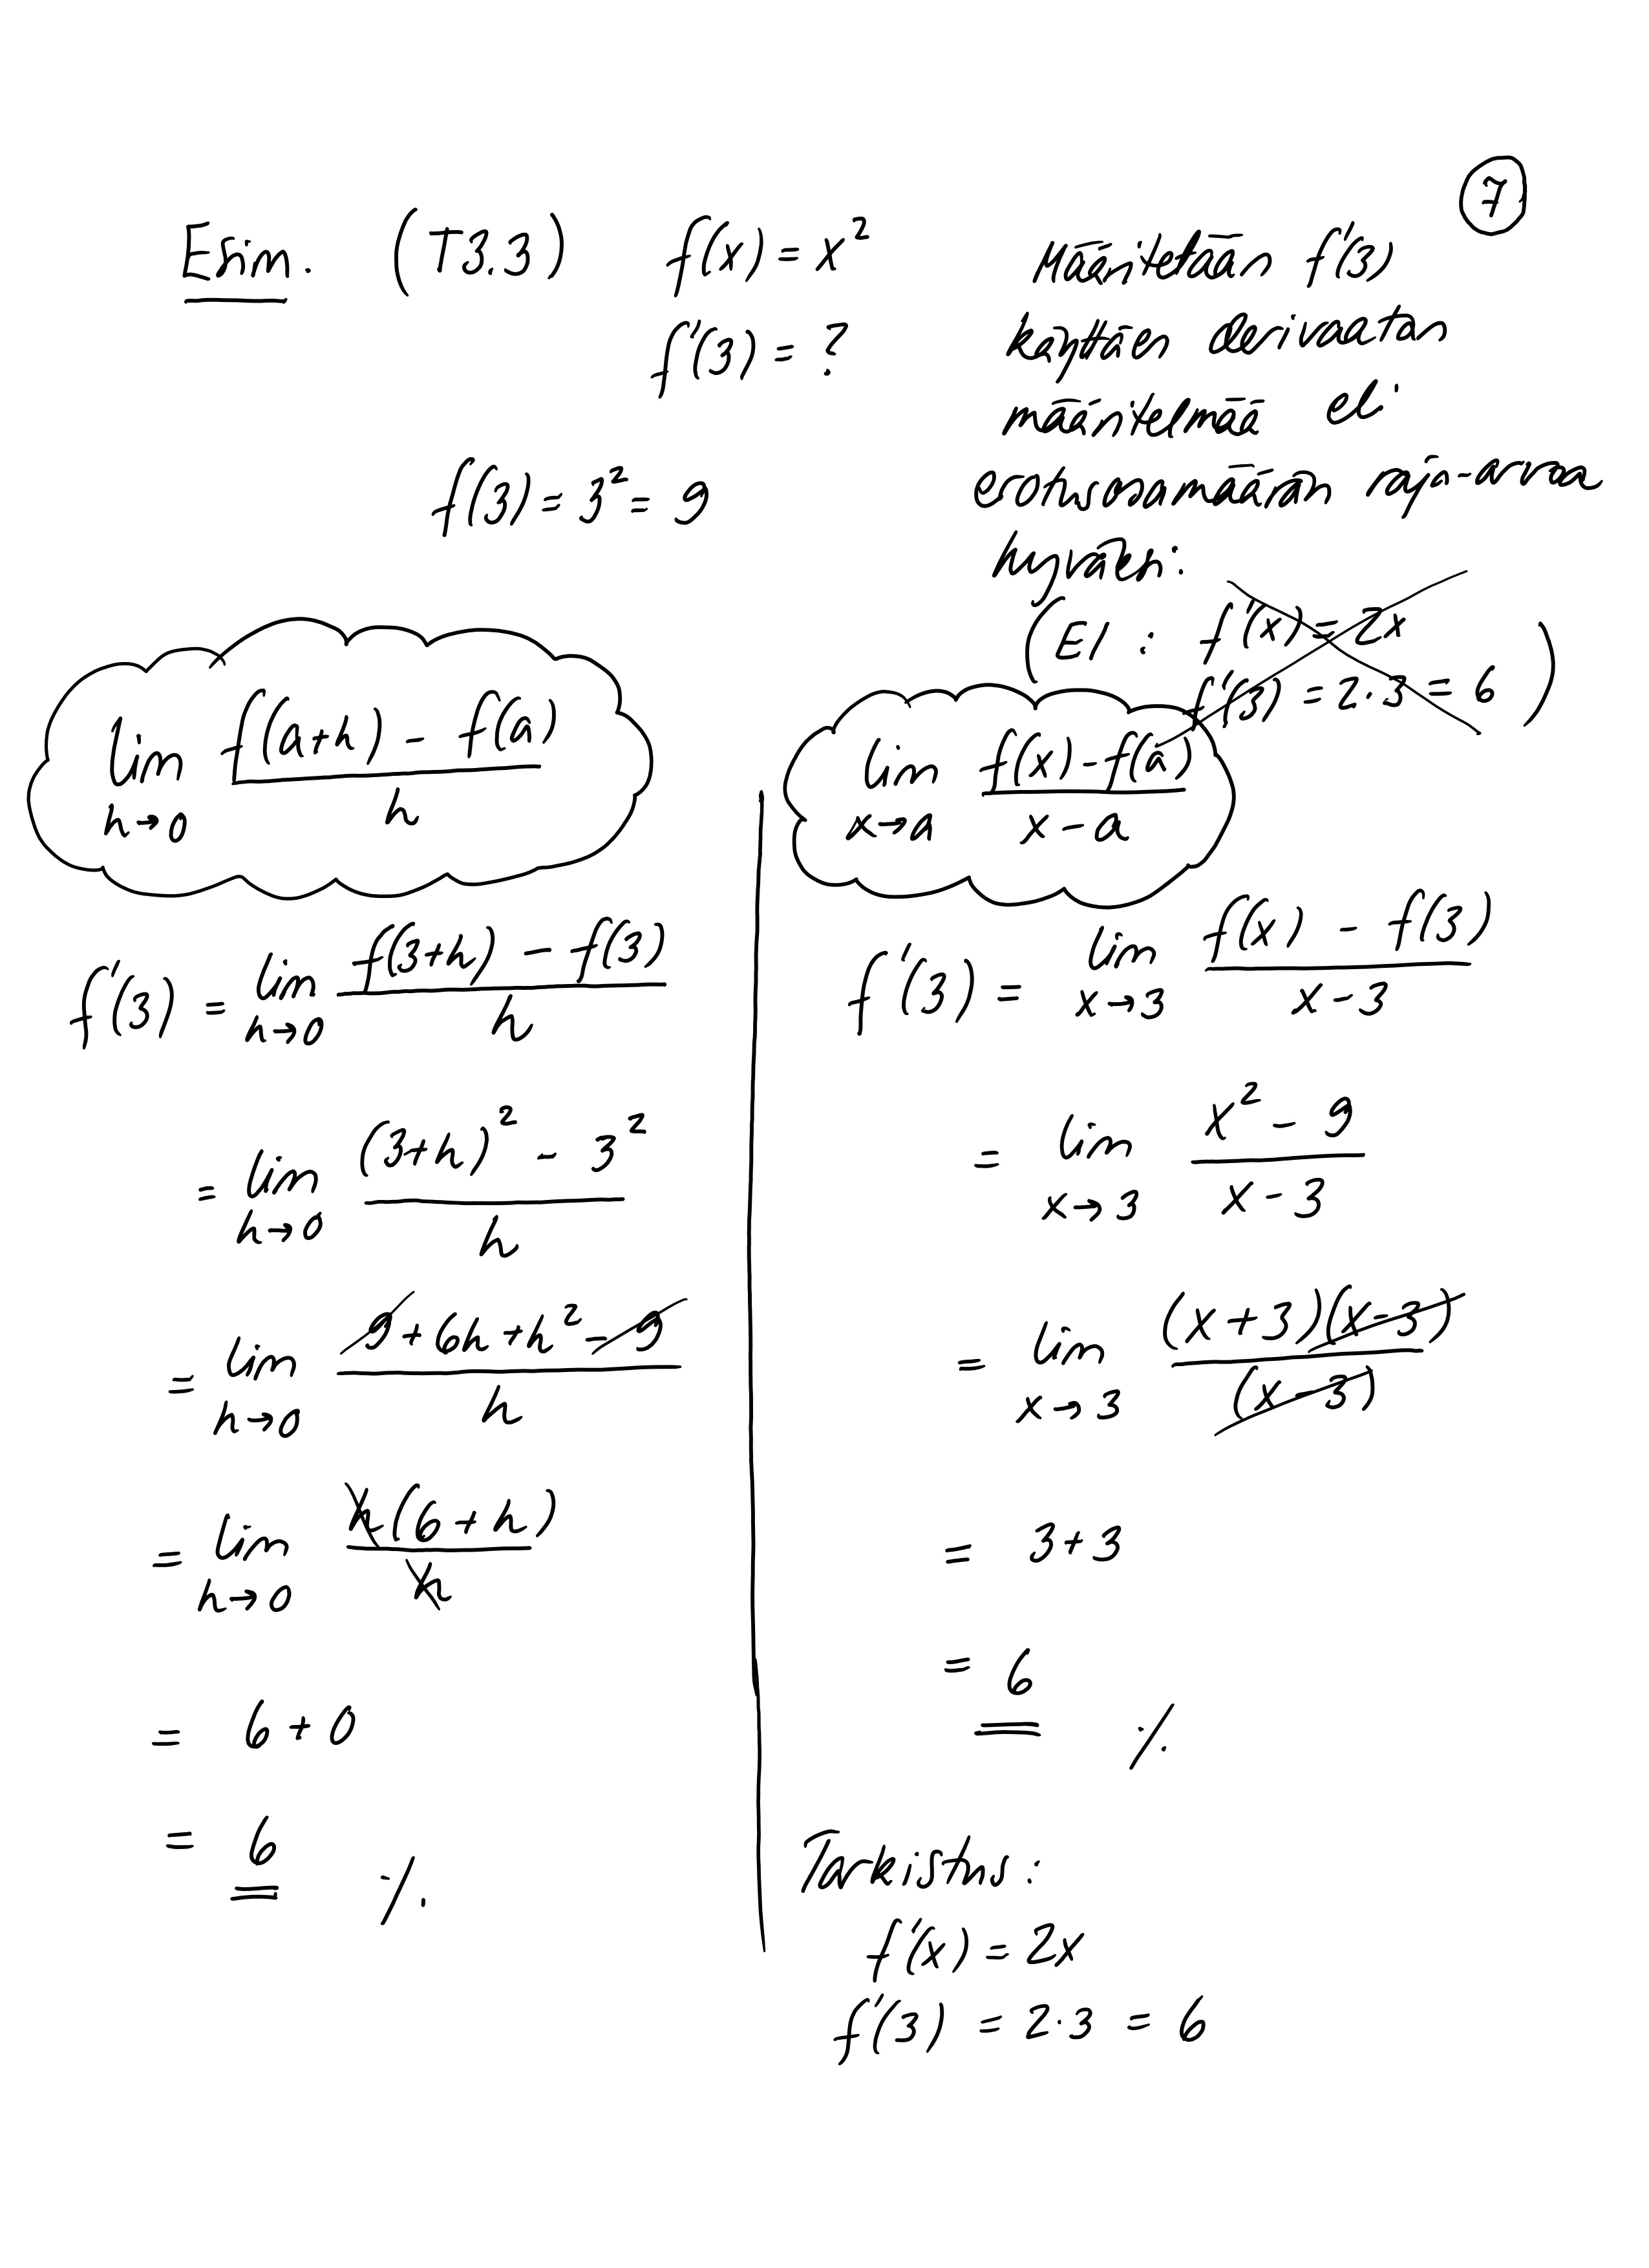 7
Esim. (T3.3) f(x) = x²
f'(3) = ?
f(3) = 3² = 9
Määritetään f'(3)
käyttäen derivaatan
määritelmää eli
erotusosamäärän raja-arvoa
hyväksi:
(EI : f'(x) = 2x
f'(3) = 2·3 = 6)
lim h→0 (f(a+h) - f(a)) / h
f'(3) = lim h→0 (f(3+h) - f(3)) / h
= lim h→0 ((3+h)² - 3²) / h
= lim h→0 (9 + 6h + h² - 9) / h
= lim h→0 h(6+h) / h
= 6 + 0
= 6 ⁒
lim x→a (f(x) - f(a)) / (x - a)
f'(3) = lim x→3 (f(x) - f(3)) / (x - 3)
= lim x→3 (x² - 9) / (x - 3)
= lim x→3 (x+3)(x-3) / (x-3)
= 3+3
= 6 ⁒
Tarkistus:
f'(x) = 2x
f'(3) = 2·3 = 6